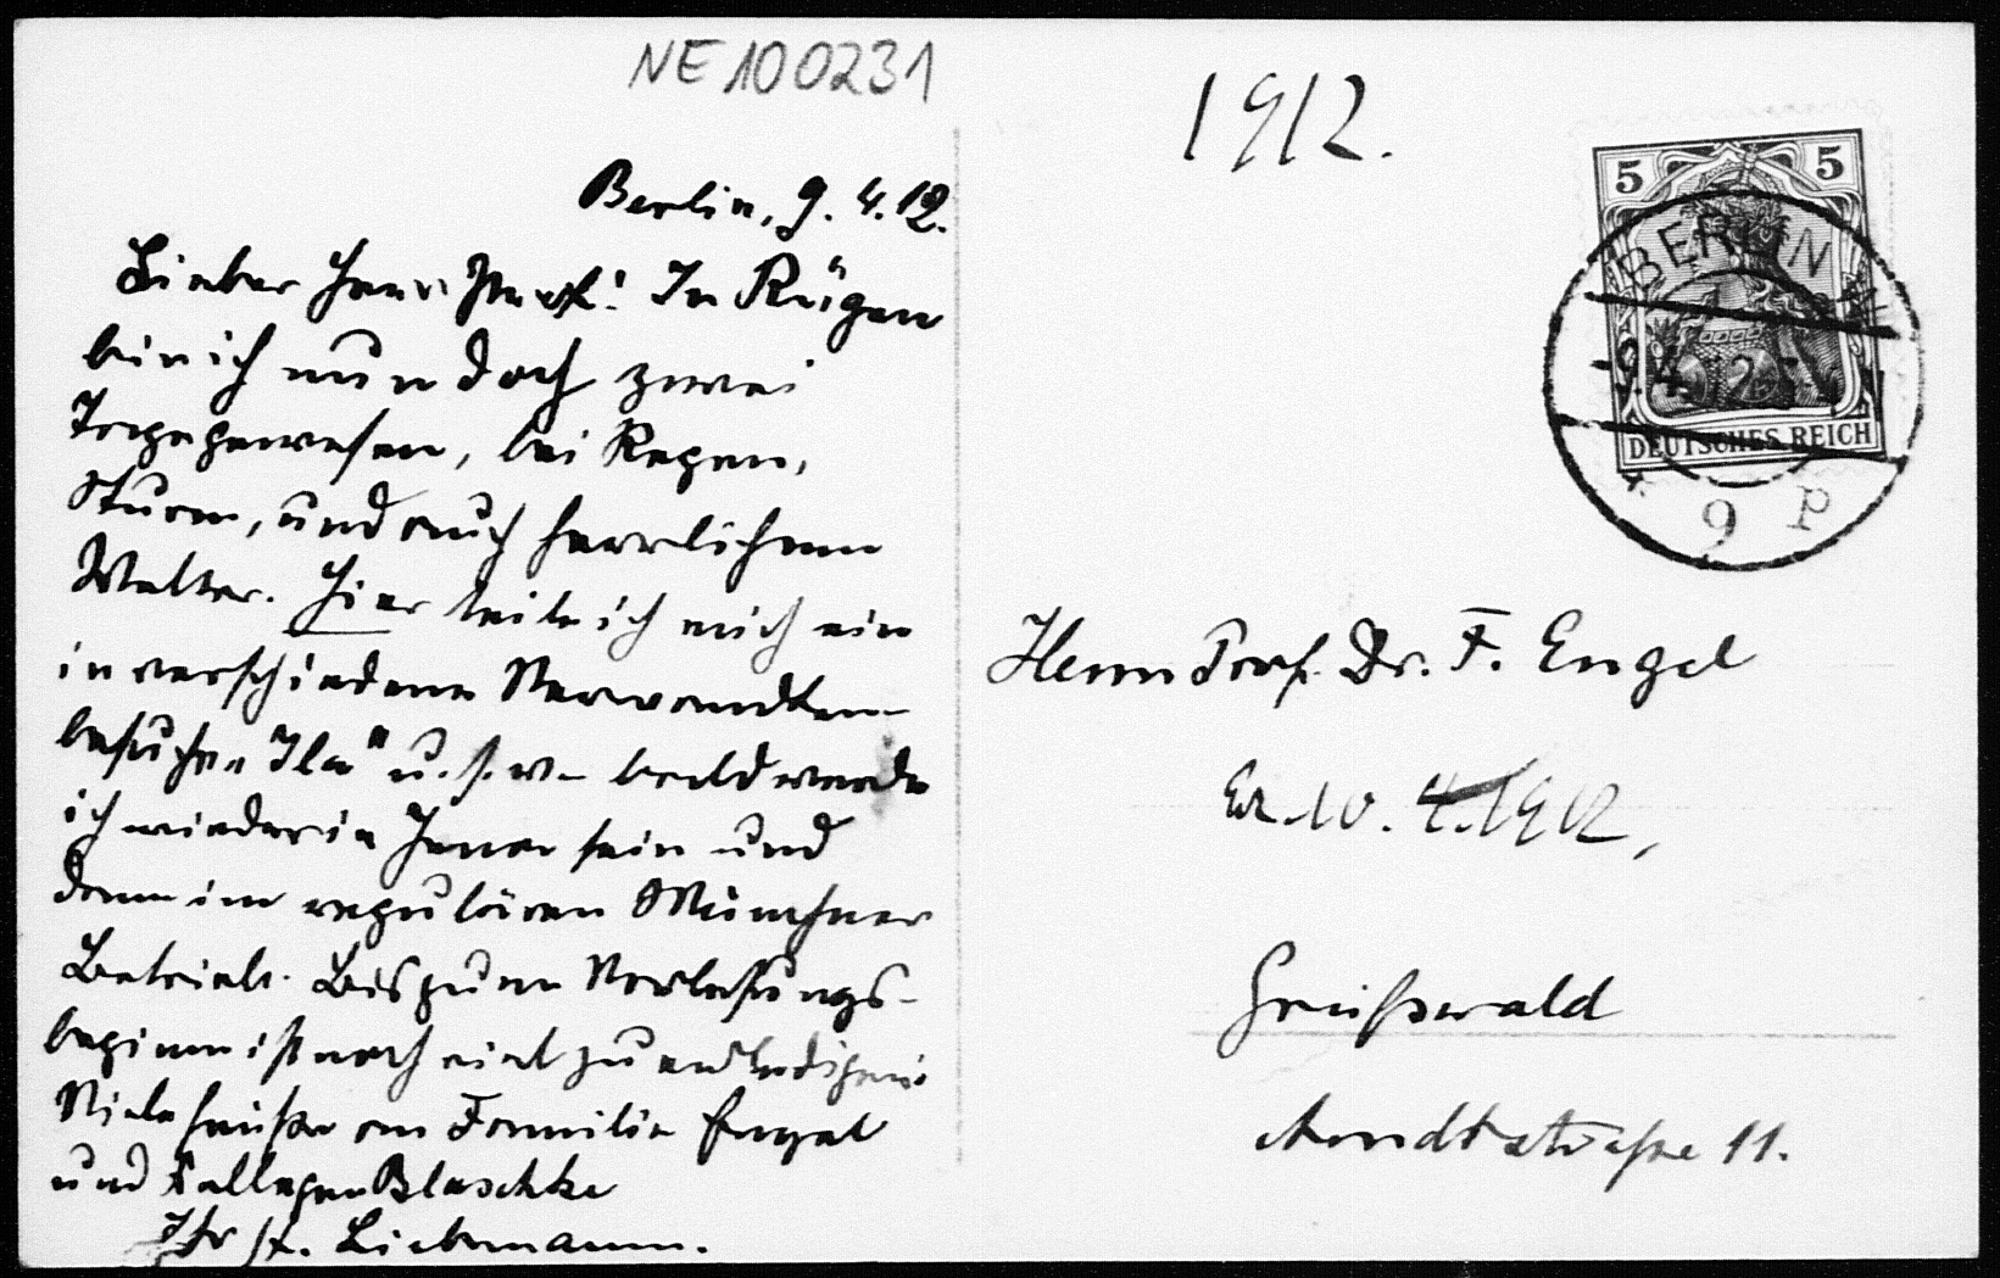 NE 100231
Berlin, 9. 4. 12.
Lieber Herr Prof.! In Rügen
bin ich nun doch zwei
Tage gewesen, bei Regen,
Sturm, und auch herrlichem
Wetter. Hier teile ich mich ein
in verschiedene Verwandten-
besuche "Ila" u. s. w. bald werde
ich wieder in Jena sein und
dann im regulären Münchner
Betrieb. Bis zum Vorlesungs-
beginn ist noch viel zu erledigen.
Viele Grüße an Familie Engel
und Kollegen Blaschke
Ihr H. Liebmann.
1912.
5 5
DEUTSCHES REICH
BERLIN W
-9.4.12
9 P
Herrn Prof. Dr. F. Engel
Er. 10. 4. 1912,
Greifswald
Arndtstraße 11.